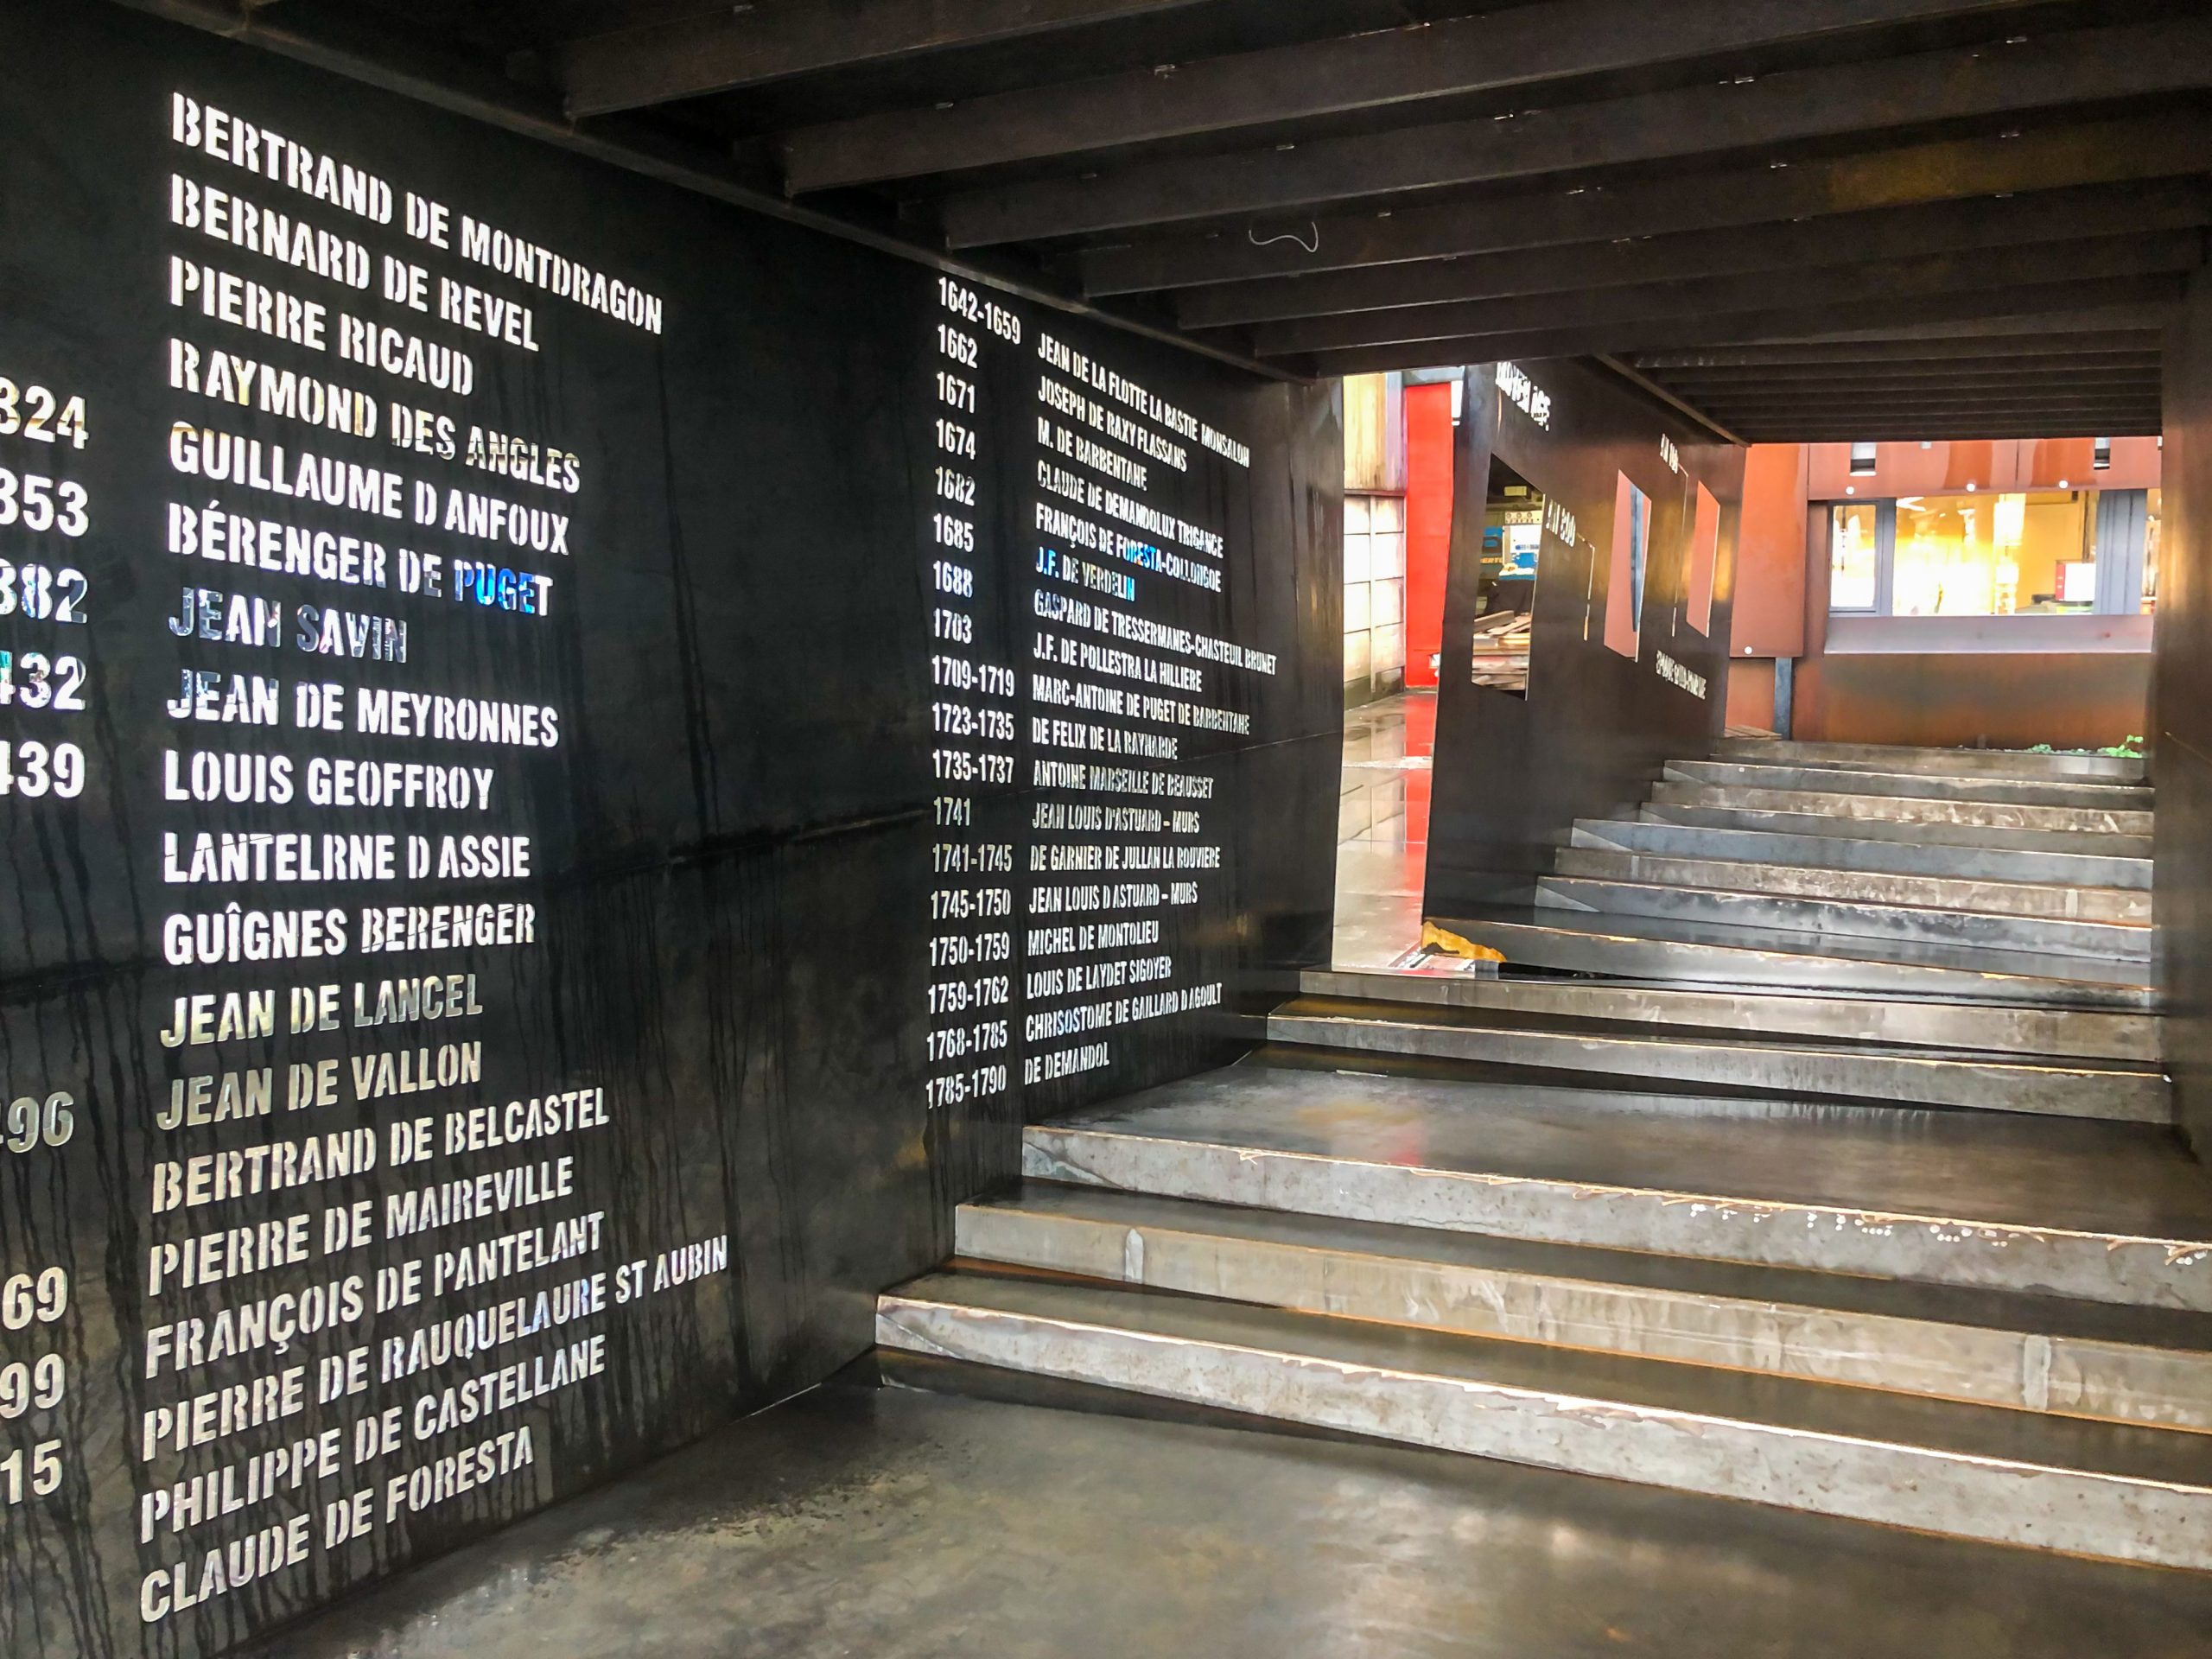 BERTRAND DE MONTDRAGON
BERNARD DE REVEL
PIERRE RICAUD
RAYMOND DES ANGLES
324 GUILLAUME D ANFOUX
353 BÉRENGER DE PUGET
382 JEAN SAVIN
432 JEAN DE MEYRONNES
439 LOUIS GEOFFROY
LANTELRNE D ASSIE
GUÎGNES BERENGER
JEAN DE LANCEL
496 JEAN DE VALLON
BERTRAND DE BELCASTEL
69 PIERRE DE MAIREVILLE
FRANÇOIS DE PANTELANT
99 PIERRE DE RAUQUELAURE ST AUBIN
15 PHILIPPE DE CASTELLANE
CLAUDE DE FORESTA
1642-1659 JEAN DE LA FLOTTE LA BASTIE MONSALON
1662 JOSEPH DE RAXY FLASSANS
1671 M. DE BARBENTANE
1674 CLAUDE DE DEMANDOLUX TRIGANCE
1682 FRANÇOIS DE FORESTA-COLLONGOE
1685 J.F. DE VERDELIN
1688 GASPARD DE TRESSERMANES-CHASTEUIL BRUNET
1703 J.F. DE POLLESTRA LA HILLIERE
1709-1719 MARC-ANTOINE DE PUGET DE BARBENTANE
1723-1735 DE FELIX DE LA RAYNARDE
1735-1737 ANTOINE MARSEILLE DE BEAUSSET
1741 JEAN LOUIS D'ASTUARD - MURS
1741-1745 DE GARNIER DE JULLAN LA ROUVIERE
1745-1750 JEAN LOUIS D ASTUARD - MURS
1750-1759 MICHEL DE MONTOLIEU
1759-1762 LOUIS DE LAYDET SIGOYER
1768-1785 CHRISOSTOME DE GAILLARD D AGOULT
1785-1790 DE DEMANDOL
MOYEN AGE
AN 800